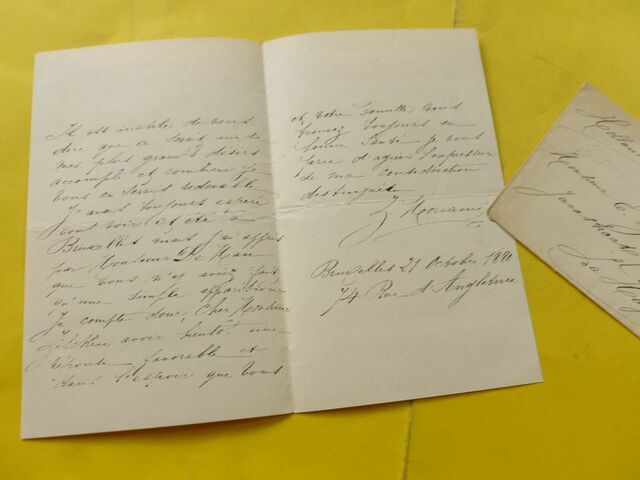 Il est inutile de vous
dire que ce serait un de
mes plus grands désirs
accompli et combien je
vous en serais redevable
J'avais toujours espéré
vous voir cet été à
Bruxelles mais j'ai appris
par Monsieur De Haan
que vous n'y aviez fait
qu'une simple apparition
Je compte donc, cher Monsieur
avoir bientôt une
réponse favorable et
dans l'espoir que vous
et votre famille vous
trouvez toujours en
bonne santé je vous
prie d'agréer l'expression
de ma considération
distinguée
Bruxelles 21 Octobre 1880
74 Rue d'Angleterre
Monsieur
La